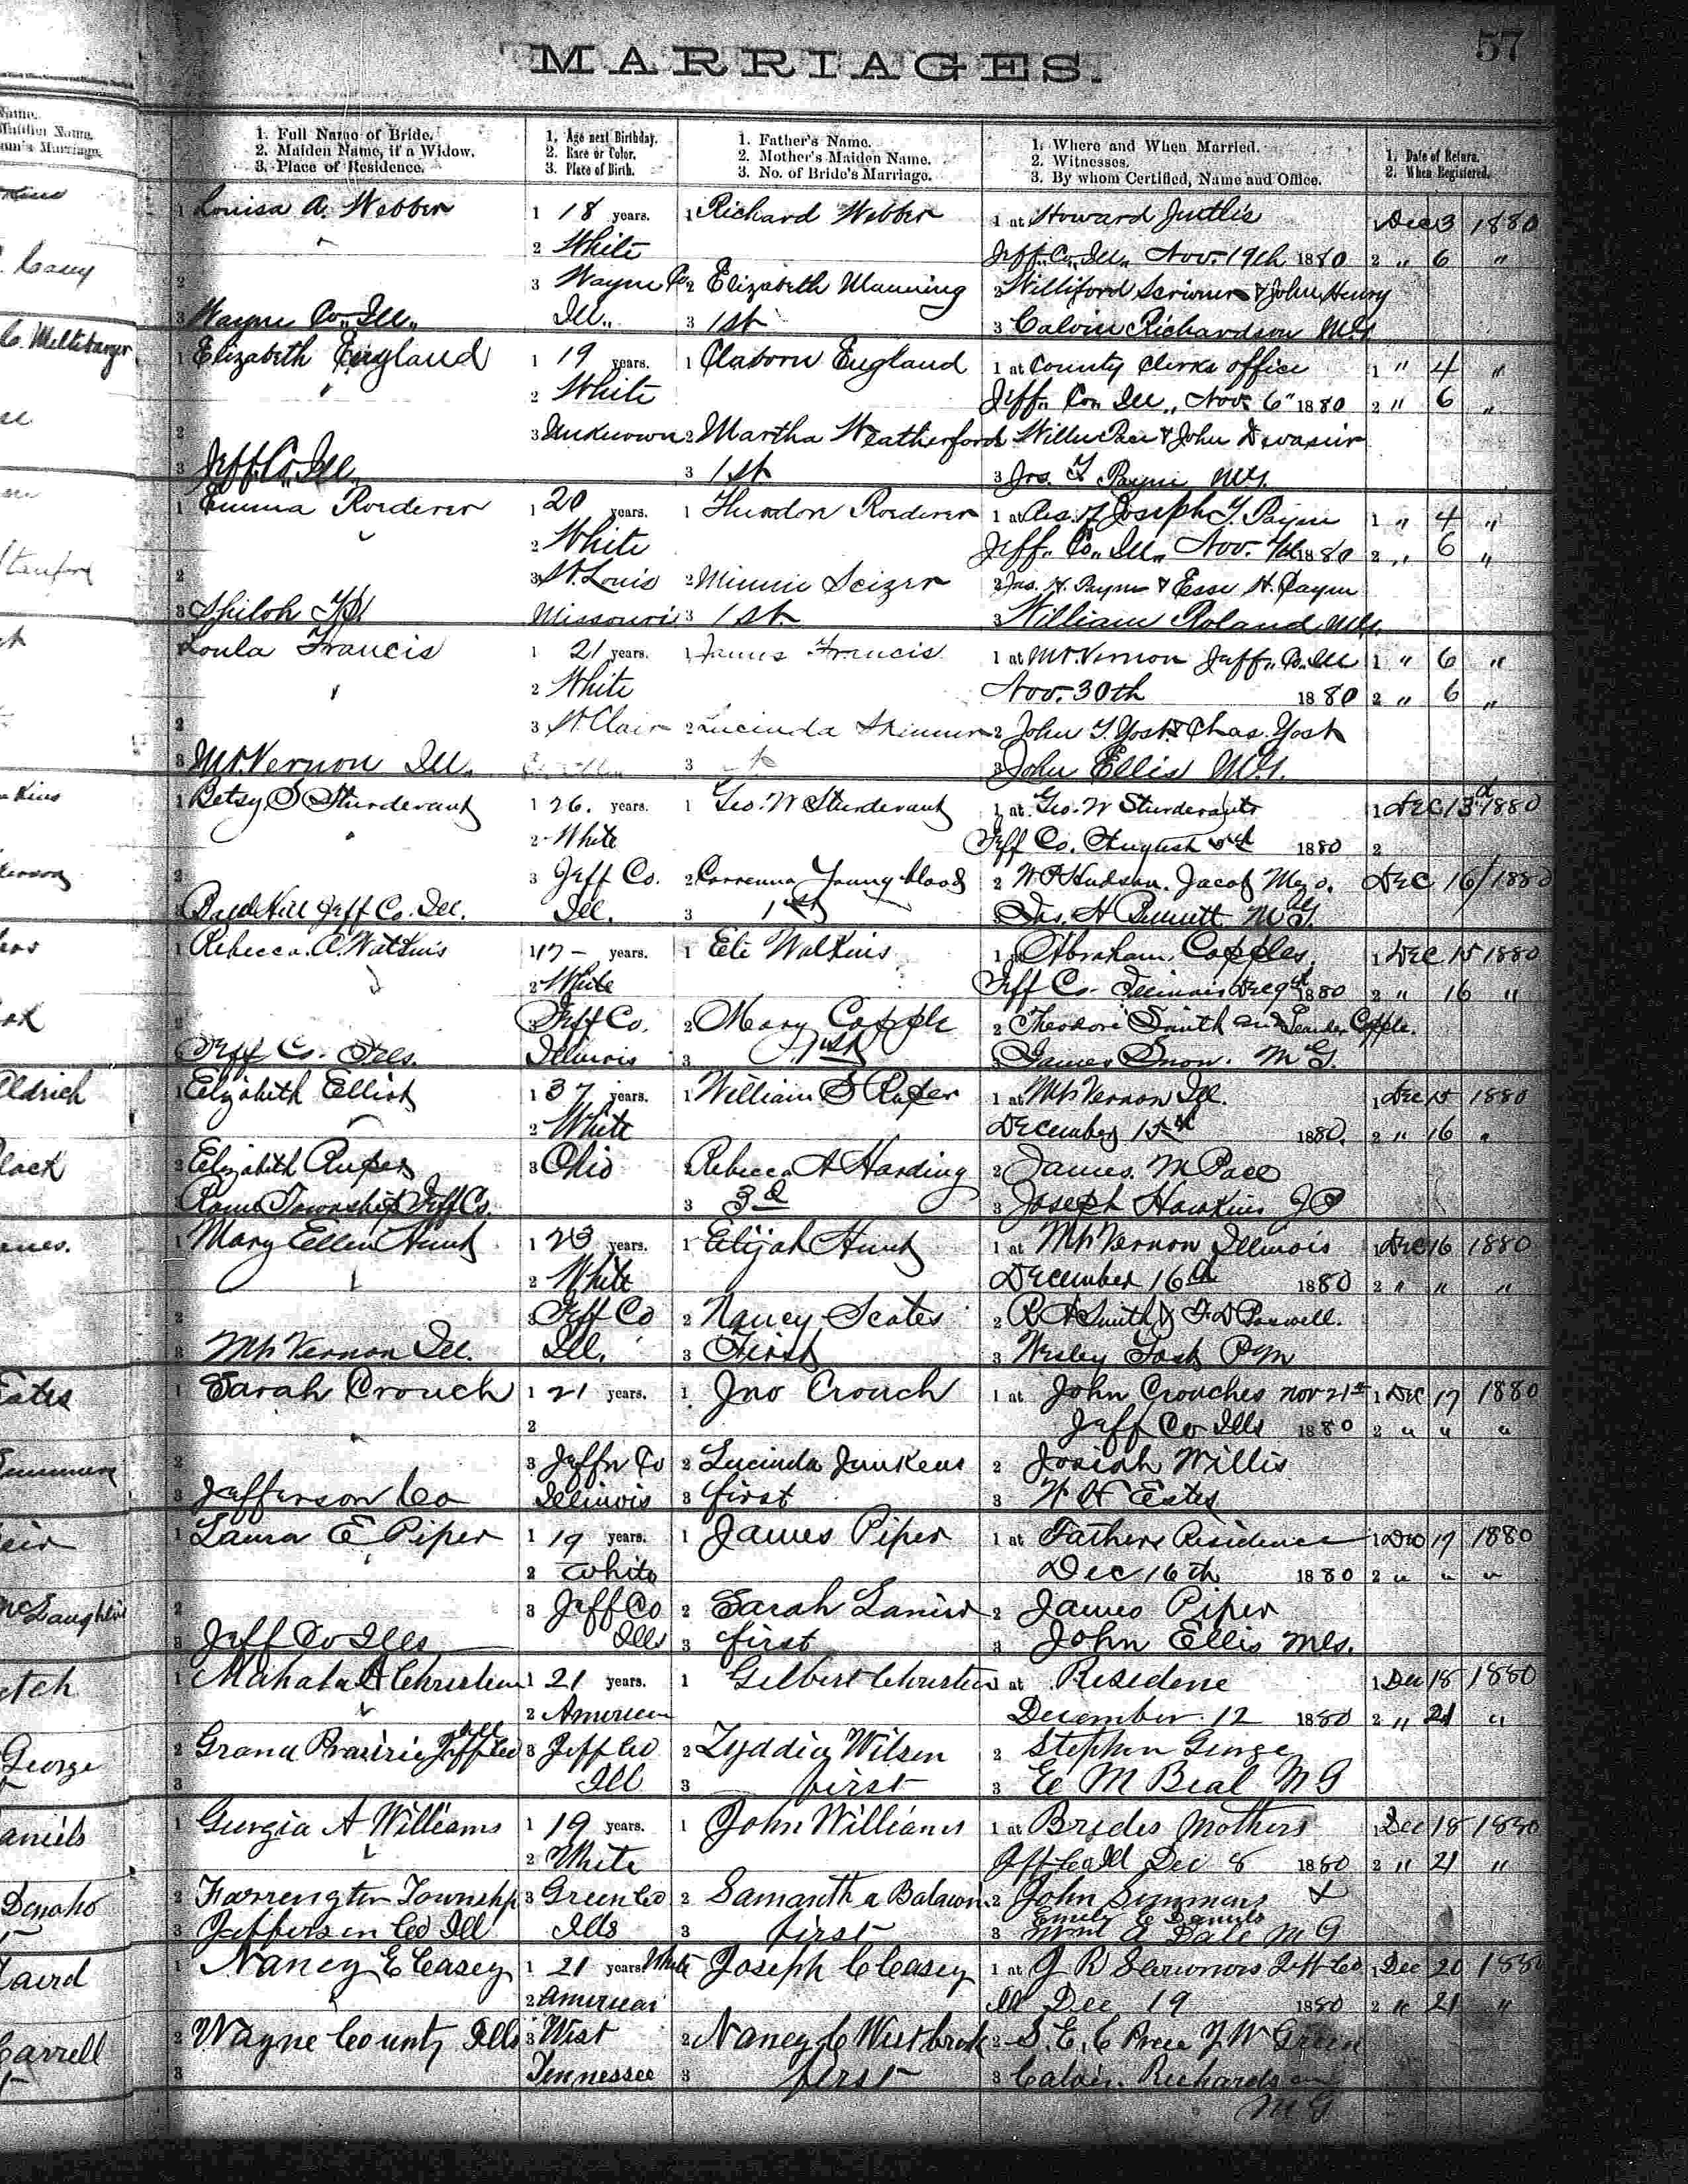 57
MARRIAGES.
1. Full Name of Bride.
2. Maiden Name, if a Widow.
3. Place of Residence.
1. Age next Birthday.
2. Race or Color.
3. Place of Birth.
1. Father's Name.
2. Mother's Maiden Name.
3. No. of Bride's Marriage.
1. Where and When Married.
2. Witnesses.
3. By whom Certified, Name and Office.
1. Date of Return.
2. When Registered.
1 Louisa A. Webber 1 18 years. 1 Richard Webber 1 at Howard Dec 3 1880
2 White Jeff. Co. Ill. Nov. 19th 1880 2 " 6 "
2 3 Wayne Co 2 Elizabeth Manning 2 Williford & John Henry
3 Wayne Co. Ill. Ill. 3 1st 3 Calvin Richardson M.G.
1 Elizabeth England 1 19 years. 1 Claborn England 1 at County Clerks office 1 " 4 "
2 White Jeff. Co. Ill. Nov. 6" 1880 2 " 6 "
2 3 Unknown 2 Martha Weatherford & John
3 Jeff. Co. Ill. 3 1st 3 Jos. T. Payne M.G.
1 Emma Roederer 1 20 years. 1 Roederer 1 at Res. of Joseph T. Payne 1 " 4 "
2 White Jeff. Co. Ill. Nov. 1880 2 " 6 "
2 3 St. Louis 2 Minnie 2 Jas. H. Payne & H. Payne
3 Shiloh Missouri 3 1st 3 William Roland M.G.
Loula Francis 1 21 years. 1 James Francis 1 at Mt. Vernon Jeff. Co. Ill 1 " 6 "
2 White Nov. 30th 1880 2 " 6 "
2 3 St. Clair 2 Lucinda 2 John T. Yost & Chas. Yost
3 Mt. Vernon Ill. 3 3 John Ellis M.G.
1 Betsy S Sturdevant 1 26. years. 1 Geo. W Sturdevant 1 at Geo. W Sturdevants 1 Dec 13 1880
2 White Jeff Co. August 1880 2
2 3 Jeff Co. 2 Youngblood 2 Hudson. Jacob Dec 16/1880
Jeff Co. Ill. Ill. 3 1st Jas. H M.G.
1 Rebecca. A. Watkins 1 17 - years. 1 Eli Watkins 1 at Abraham Copples. 1 Dec 15 1880
2 White Jeff Co. Illinois Dec 9th 1880 2 " 16 "
2 3 Jeff Co. 2 Mary Copple 2 Theodore Smith and Copple.
Jeff Co. Ills. Illinois 3 1st 3 James Snow. M.G.
1 Elizabeth Elliot 1 37 years. 1 William S 1 at Mt Vernon Ill. 1 Dec 15 1880
2 White December 15th 1880. 2 " 16 "
2 Elizabeth 3 Ohio Rebecca A Harding 2 James. M Pace
Rome Township Jeff Co. 3 3d 3 Joseph Hawkins JP
1 Mary Ellen Hunt 1 23 years. 1 Elijah Hunt 1 at Mt Vernon Illinois 1 Dec 16 1880
2 White December 16th 1880 2 " " "
2 3 Jeff Co 2 Nancy Scates 2 R A Smith & F. D
3 Mt Vernon Ill. Ill. 3 First 3 Wesley
1 Sarah Crouch 1 21 years. 1 Jno Crouch 1 at John Crouches Nov 21st 1 Dec 17 1880
2 Jeff Co Ills 1880 2 " " "
2 3 Jeffn Co 2 Lucinda Junkens 2 Josiah Willis
3 Jefferson Co Illinois 3 first 3 W H Estes
1 Laura E Piper 1 19 years. 1 James Piper 1 at Fathers Residence 1 Dec 17 1880
2 White Dec 16th 1880 2 " " "
2 3 Jeff Co 2 Sarah Lanier 2 James Piper
3 Jeff Co Ills Ills 3 first 3 John Ellis
1 Mahala A Christian 1 21 years. 1 Gilbert Christian 1 at Residene 1 Dec 18 1880
2 American December 12 1880 2 " 21 "
2 Grand Prairie Jeff Co Ill 3 Jeff Co 2 Lyddia Wilson 2 Stephen George
3 Ill 3 first 3 M Beal M G
1 Georgia A Williams 1 19 years. 1 John Williams 1 at Brides Mothers 1 Dec 18 1880
2 White Jeff Co Ill Dec 8 1880 2 " 21 "
2 Farrington Township 3 Green Co 2 Samantha 2 John Simmons &
Emily E Daniels
3 Jefferson Co Ill Ills 3 first 3 Wm A Dale M G
1 Nancy E Casey 1 21 years. White Joseph C Casey 1 at J R Jeff Co 1 Dec 20 1880
2 American Ill Dec 19 1880 2 " 21 "
2 Wayne County Ills 3 West 2 Nancy C Westbrook 2 S. E. C Y W Green
3 Tennessee 3 first 3 Calvin Richardson
M G